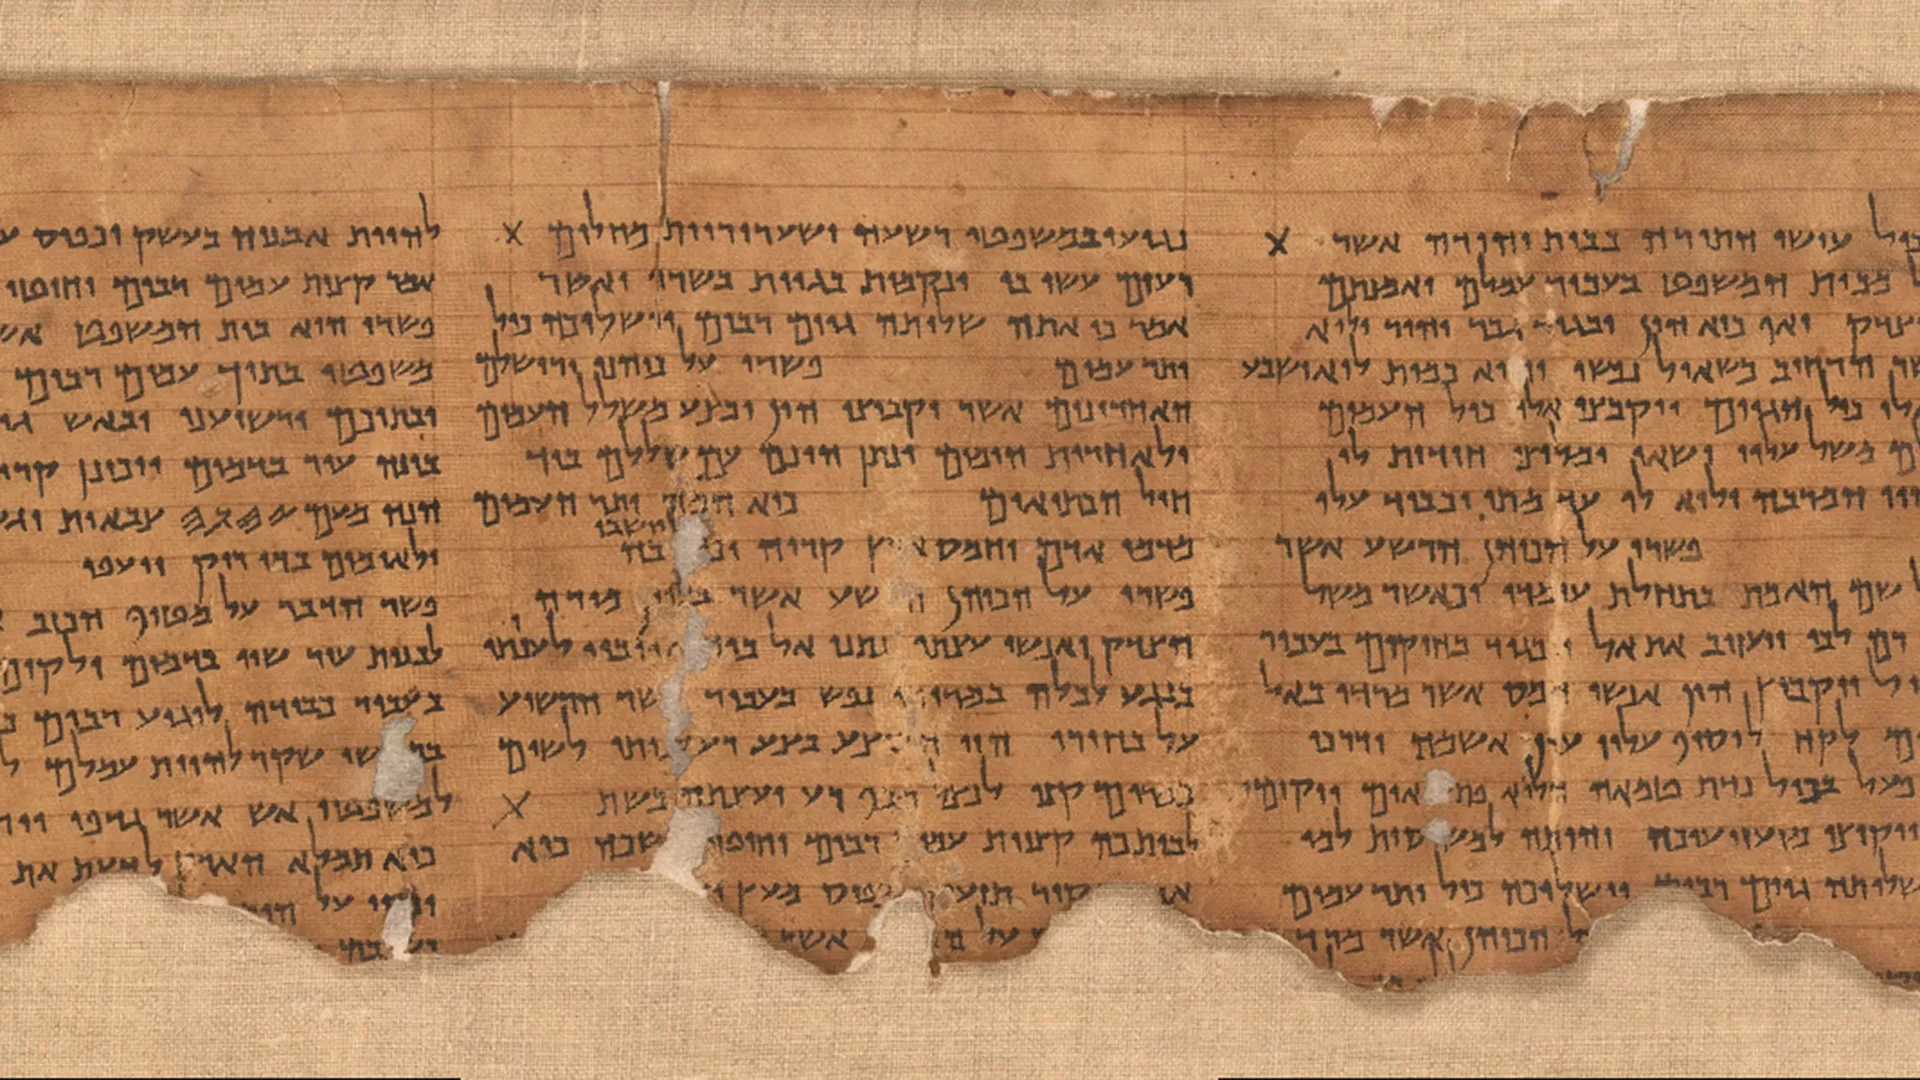 כול עושי התורה בבית יהודה אשר X
מבית המשפט בעבור עמלם ואמנתם
הצדק ואף כיא הון יבגוד גבר יהיר ולוא
הרחיב כשאול נפשו והוא כמות לוא ישבע
אלו כול הגוים ויקבצו אלו כול העמים
משל עליו ישאו ומליצי חידות לו
הוי המרבה ולוא לו עד מתי יכביד עלו
פשרו על הכוהן הרשע אשר
שם האמת בתחלת עומדו וכאשר משל
רם לבו ויעזוב את אל ויבגוד בחוקים בעבור
ויקבוץ הון אנשי חמס אשר מרדו באל
לקח לוסיף עליו עון אשמה ודרכי
פעל בכול נדת טמאה הלוא פת אום ויקומו
ויקיצו מזעזיעיכה והיתה למש סות למו
שלותה גוים רבים וישלוכה כול יתר עמים
הכוהן אשר מרד
נגועו במשפטי רשעה ושערוריות מחלים X
רעים עשו בו ונקמות בגוית בשרו ואשר
אמר כי אתה שלותה גוים רבים וישלוכה כול
יתר עמים פשרו על כוהני ירושלם
האחרונים אשר יקבוצו הון ובצע משלל העמים
ולאחרית הימים ינתן הונם עם שללם ביד
חיל הכתיאים כיא המה יתר העמים
יושבי
מדמי אדם וחמס ארץ קריה וכ בה
פשרו על הכוהן ה שע אשר בעוון מורה
הצדק ואנשי עצתו נתנו אל ביד אויביו לענותו
בנגע לכלה במרורי נפש בעבור שר הרשיע
על בחירו הוי ה וצע בצע רע לביתו לשום
במרום קנו לנצל מכף רע יעצתה בשת X
לביתכה קצוות עמים רבים וחוטי שכה כיא
קיר תזעק פיס מעץ
על אשר
להיות אבניה בעשק וכפיס
אמר קצות עמים רבים וחוטי
פשרו הוא בית המשפט
משפטו בתוך עמים רבים
ובתוכם ירשיענו ובאש
בונה עיר בדמים ויכונן
הנה מעם 𐤉𐤄𐤅𐤄 צבאות
ולאומים בדי ריק ייעפו
פשר הדבר על מטיף הכזב
לבנות עיר שוו בדמים ולקים
בעבור כבודה לוגיע רבים
במ שי שקר להיות עמלם
למשפטי אש אשר גדפו
כיא תמלא הארץ לדעת את
על